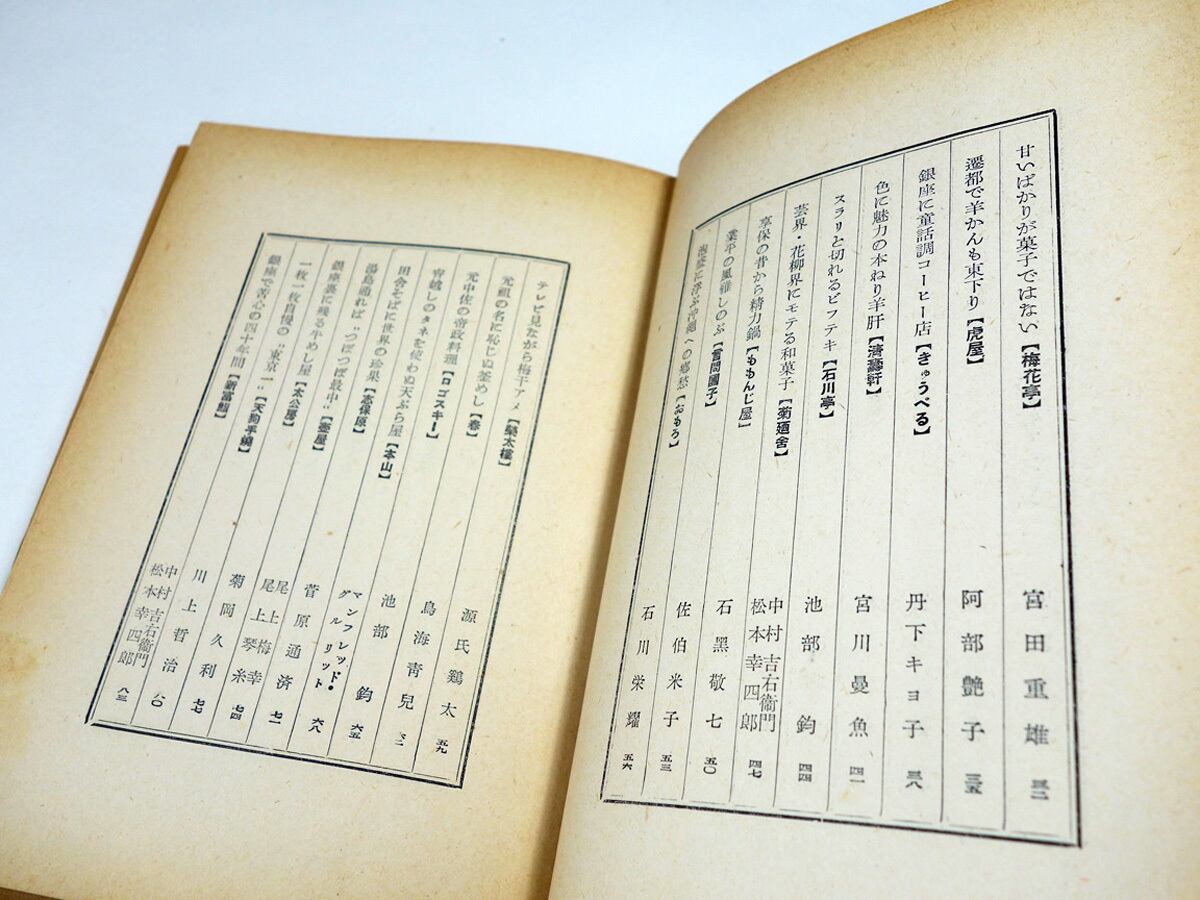 甘いばかりが菓子ではない【梅花亭】 宮田重雄 三二
遷都で羊かんも東下り【虎屋】 阿部艶子 三五
銀座に童話調コーヒー店【きゅうべる】 丹下キヨ子 三八
色に魅力の本ねり羊肝【済壽軒】 宮川曼魚 四一
スラリと切れるビフテキ【石川亭】 池部鈞 四四
芸界・花柳界にモテる和菓子【菊廼舎】 中村吉右衛門 松本幸四郎 四七
享保の昔から精力鍋【ももんじ屋】 石黒敬七 五〇
業平の風雅しのぶ【言問團子】 佐伯米子 五三
泡盛に浮ぶ沖縄への郷愁【おもろ】 石川栄耀 五六
テレビ見ながら梅干アメ【榮太樓】 源氏鶏太 五九
元祖の名に恥じぬ釜めし【春】 鳥海青児 六二
元中佐の帝政料理【ロゴスキー】 池部鈞 六五
宵越しのタネを使わぬ天ぷら屋【本山】 マンフレッド・グルリット 六八
田舎そばに世界の珍果【志保原】 菅原通済 七一
湯島通れば〝つぼつぼ最中〟【壺屋】 尾上梅幸 尾上琴糸 七四
銀座裏に残る牛めし屋【太公房】 菊岡久利 七七
一枚一枚自慢の〝東京一〟【天狗手焼】 川上哲治 八〇
銀座で苦心の四十年間【新富鮨】 中村吉右衛門 松本幸四郎 八三